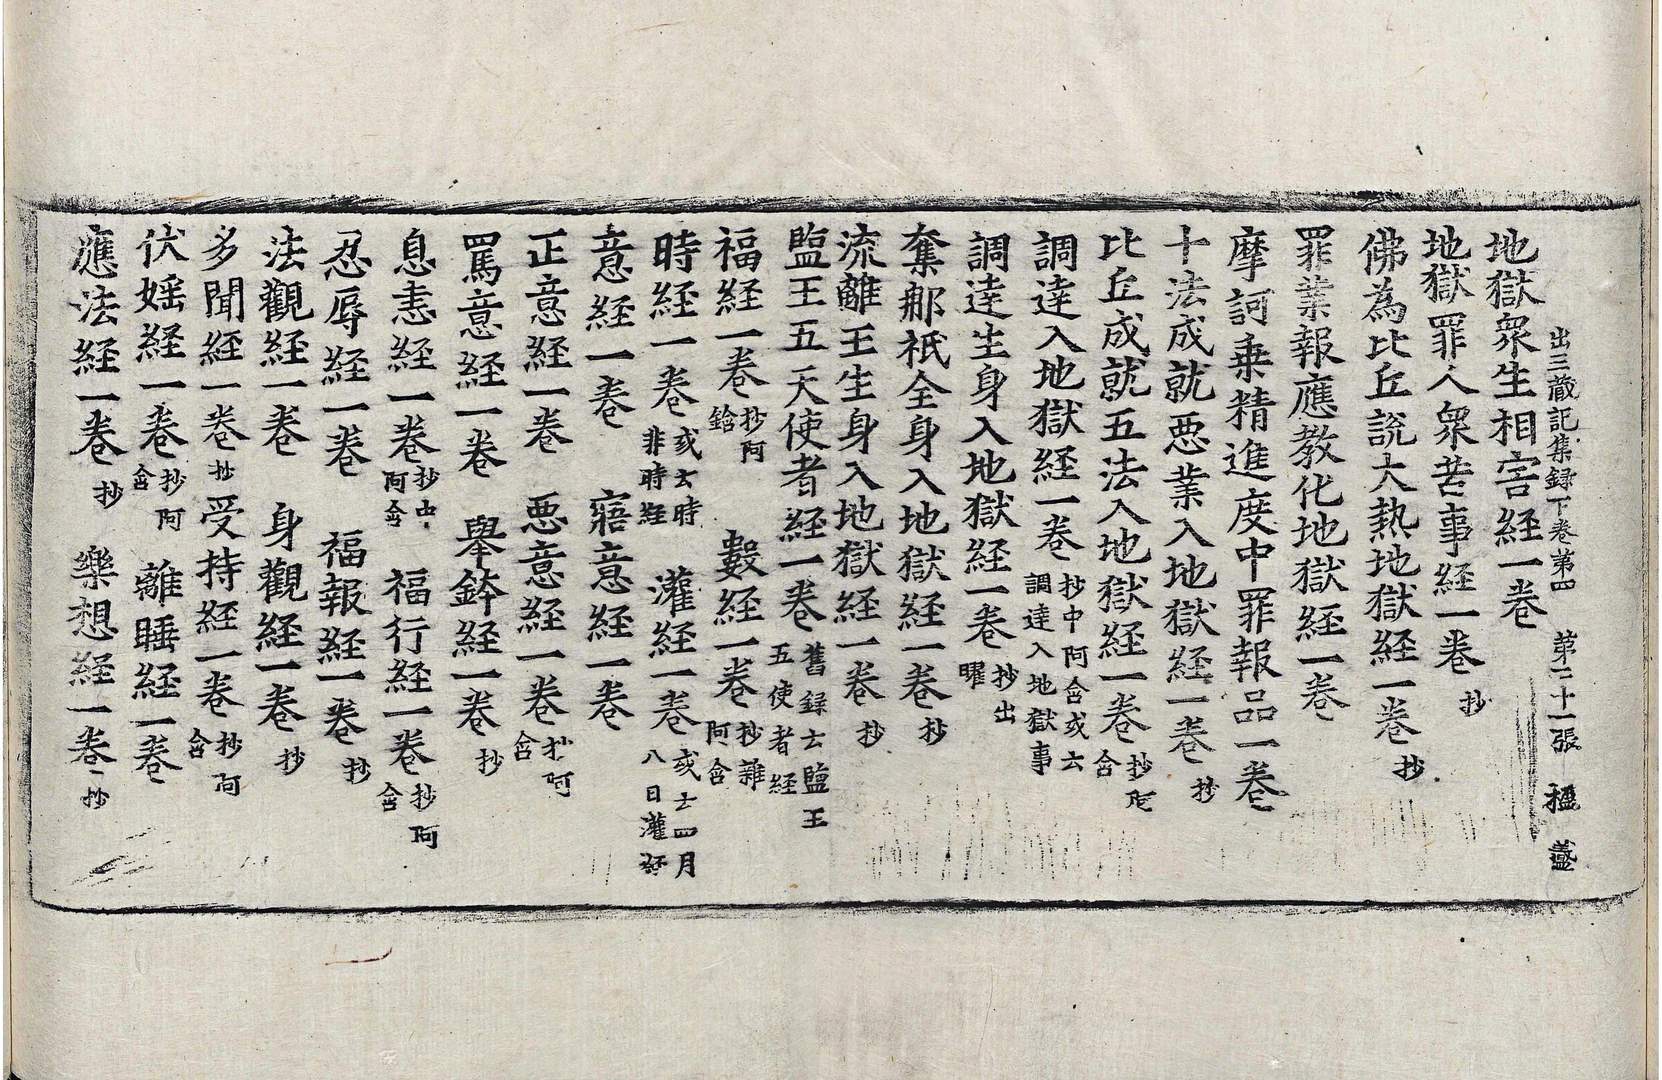 出三藏記集録下卷第四 第二十一張 楹 盖
地獄衆生相害経一卷
地獄罪人衆苦事経一卷 抄
佛為比丘説大熱地獄経一卷 抄
罪業報應教化地獄経一卷
摩訶乗精進度中罪報品一卷
十法成就悪業入地獄経一卷 抄
比丘成就五法入地獄経一卷 抄阿含
調達入地獄経一卷 抄中阿含或六調達入地獄事
調達生身入地獄経一卷 抄出曜
奪那祇全身入地獄経一卷 抄
流離王生身入地獄経一卷 抄
監王五天使者経一卷 舊録云監王五使者経
福経一卷 抄阿鋡 數経一卷 抄雜阿含
時経一卷 或云時非時経 灌経一卷 或云四月八日灌経
意経一卷 寤意経一卷
正意経一卷 悪意経一卷 抄阿含
罵意経一卷 舉鉢経一卷 抄
息恚経一卷 抄中阿含 福行経一卷 抄阿含
忍辱経一卷 福報経一卷 抄
法觀経一卷 身觀経一卷 抄
多聞経一卷 抄 受持経一卷 抄阿含
伏婬経一卷 抄阿含 離睡経一卷
應法経一卷 抄 樂想経一卷 抄